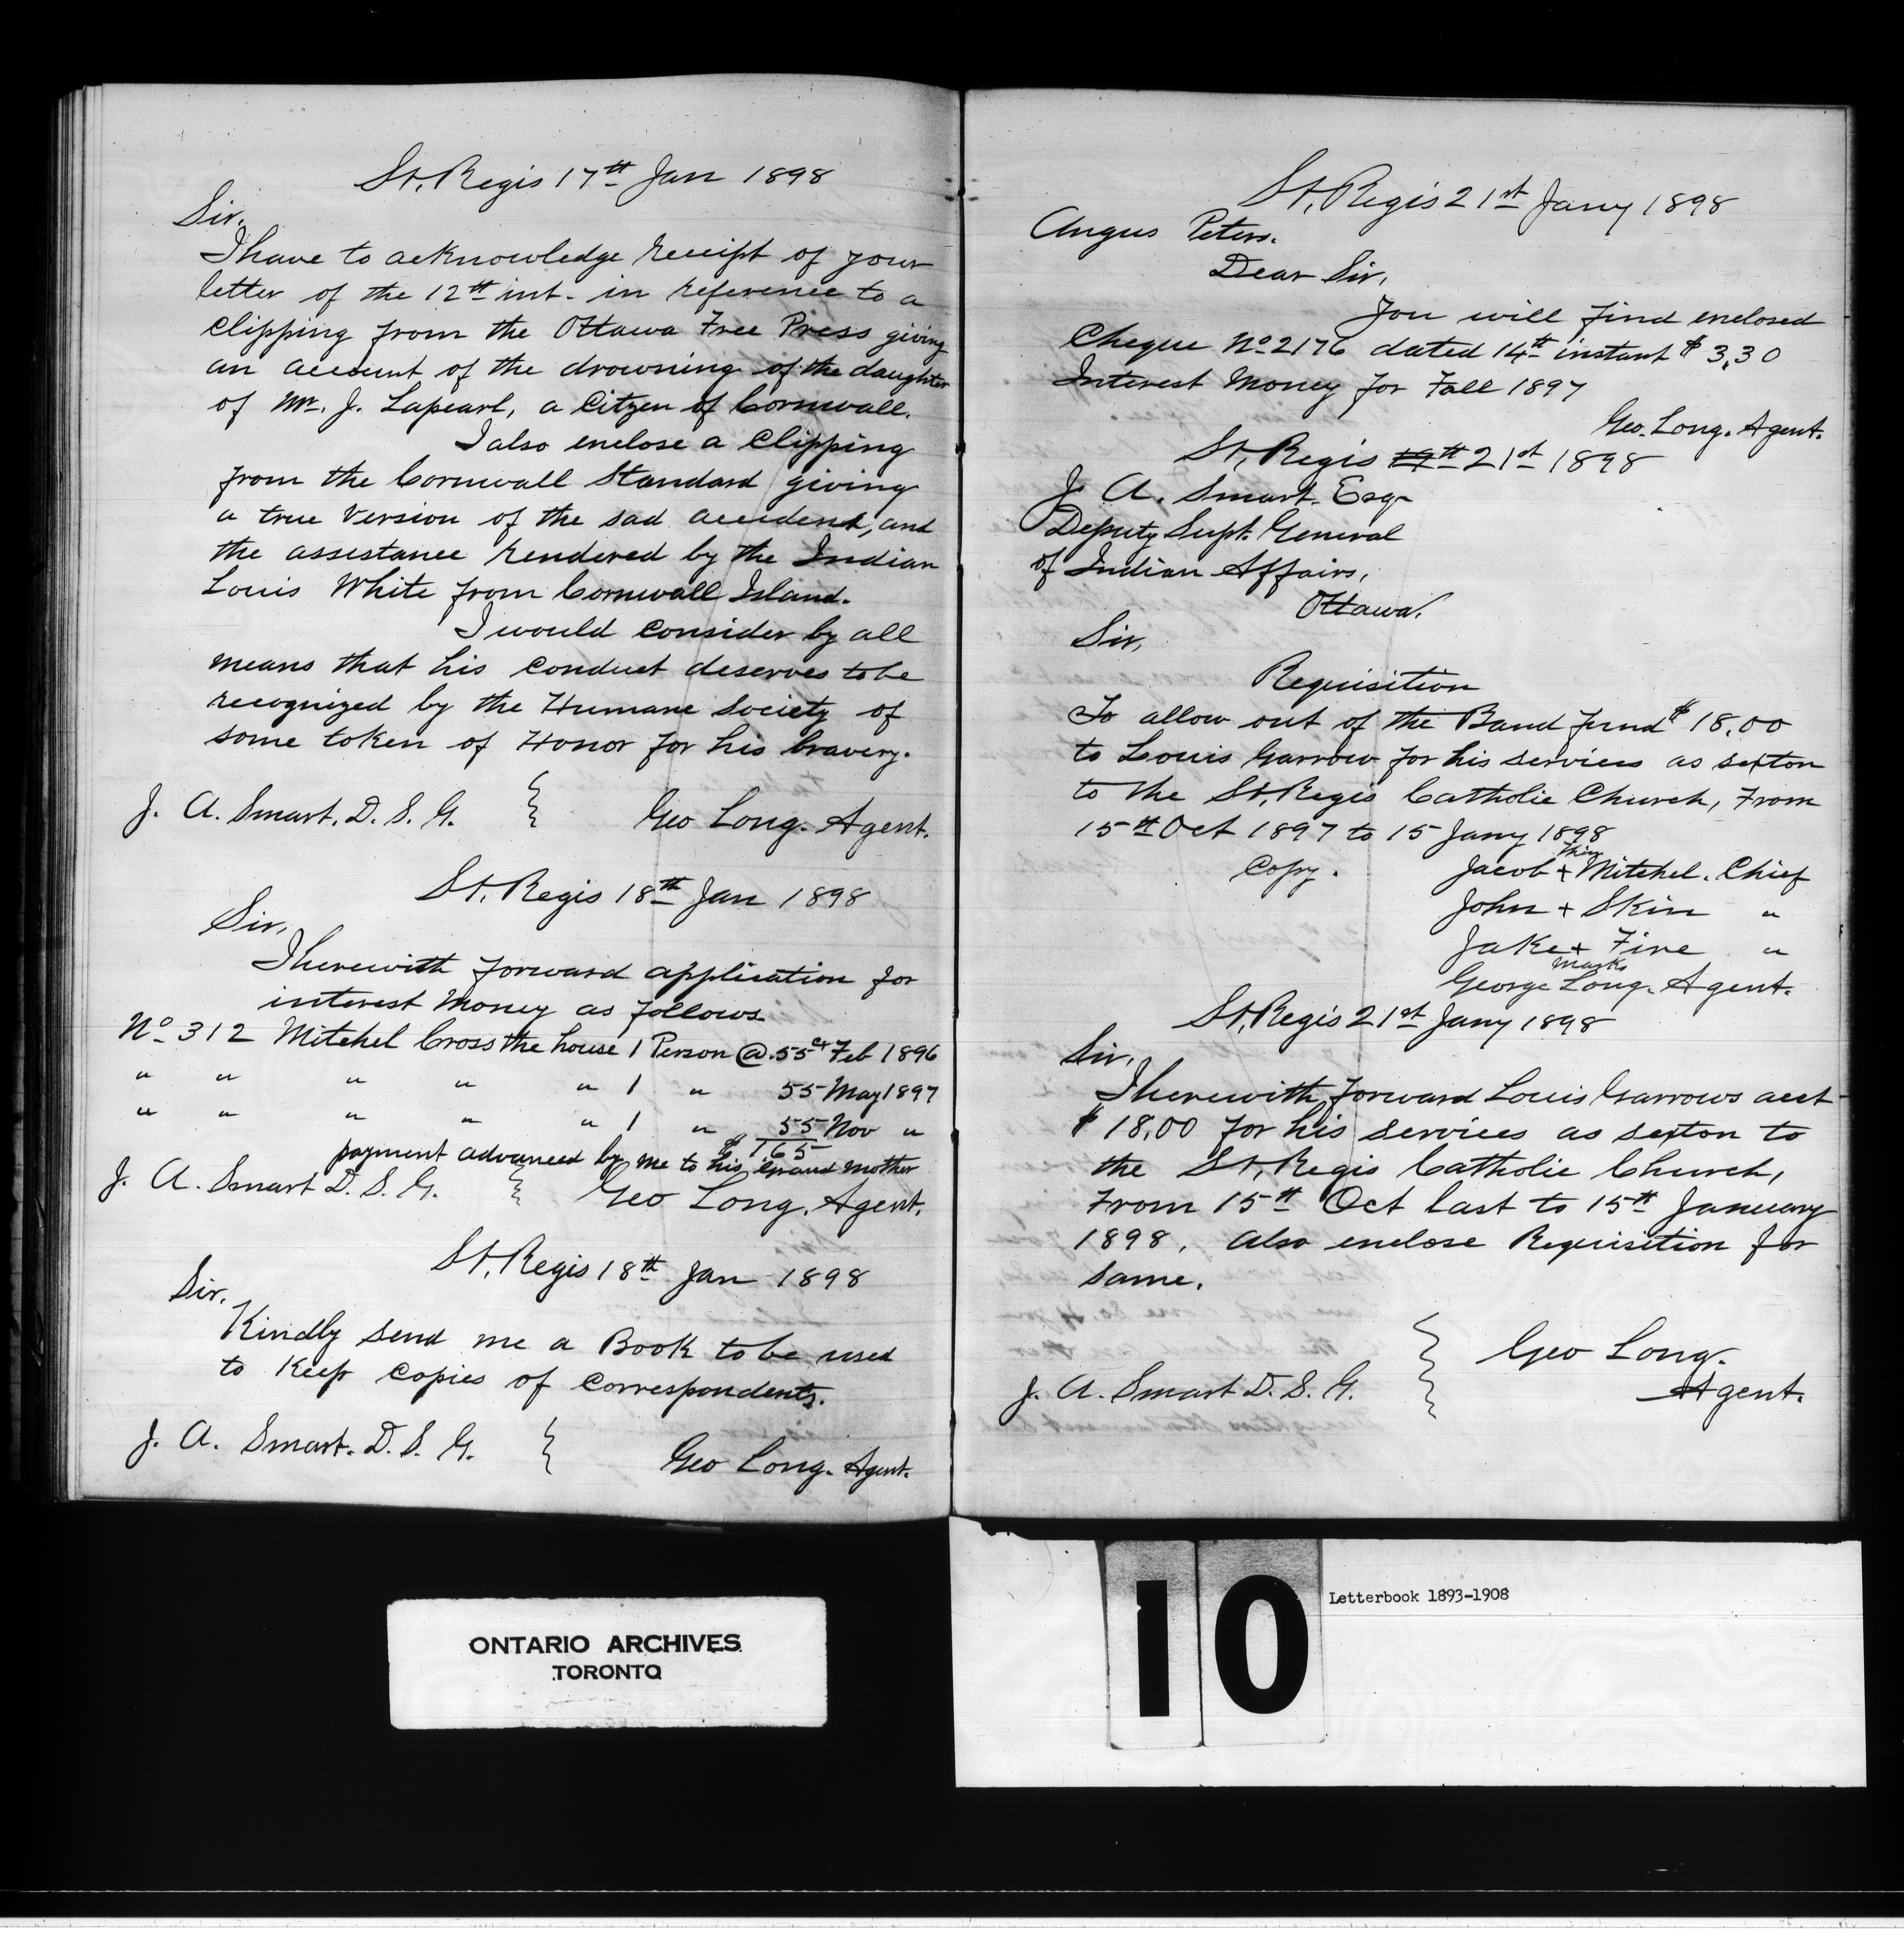 St, Regis 17th Jan 1898
Sir.
I have to acknowledge receipt of your
letter of the 12th int. in reference to a
Clipping from the Ottawa Free Press giving
an account of the drowning of the daughter
of Mr. J. Lapearl, a Citzen of Cornwall.
I also enclose a Clipping
from the Cornwall Standard giving
a true Version of the sad accident, and
the assistance rendered by the Indian
Louis White from Cornwall Island.
I would Consider by all
means that his Conduct deserves to be
recognized by the Humane Society of
some token of Honor for his bravery.
J. A. Smart. D. S. G. } Geo Long. Agent.
St, Regis 18th Jan 1898
Sir,
I herewith forward application for
interest Money as follows
No 312 Mitchel Cross the house 1 Person @ .55cts Feb 1896
" " " " " 1 " 55 May 1897
" " " " " 1 " 55 Nov "
$ 1.65
payment advanced by me to his Grand Mother
J. A. Smart D. S. G. } Geo Long. Agent.
St, Regis 18th Jan 1898
Sir.
Kindly send me a Book to be used
to Keep Copies of Correspondents.
J. A. Smart. D. S. G. } Geo Long. Agent.
St, Regis 21st Jany 1898
Angus Peters.
Dear Sir,
You will find enclosed
Cheque No 2176 dated 14th instant $ 3,30
Interest Money for Fall 1897
Geo. Long. Agent.
St, Regis 19th 21st 1898
J. A. Smart. Esqr
Deputy Supt. General
of Indian Affairs,
Ottawa.
Sir,
Requisition
To allow out of the Band fund $ 18,00
to Louis Garrow for his services as sexton
to the St, Regis Catholic Church, From
15th Oct 1897 to 15 Jany 1898
Copy. Jacob + Mitchel. Chief
John + Skin "
Jake + Fire "
marks
George Long. Agent.
St, Regis 21st Jany 1898
Sir,
I herewith forward Louis Garrows acct
$ 18,00 for his services as sexton to
the St, Regis Catholic Church,
From 15th Oct last to 15th January
1898, also enclose Requisition for
same.
J. A. Smart D. S. G. } Geo Long.
Agent.
ONTARIO ARCHIVES
TORONTO
10
Letterbook 1893-1908